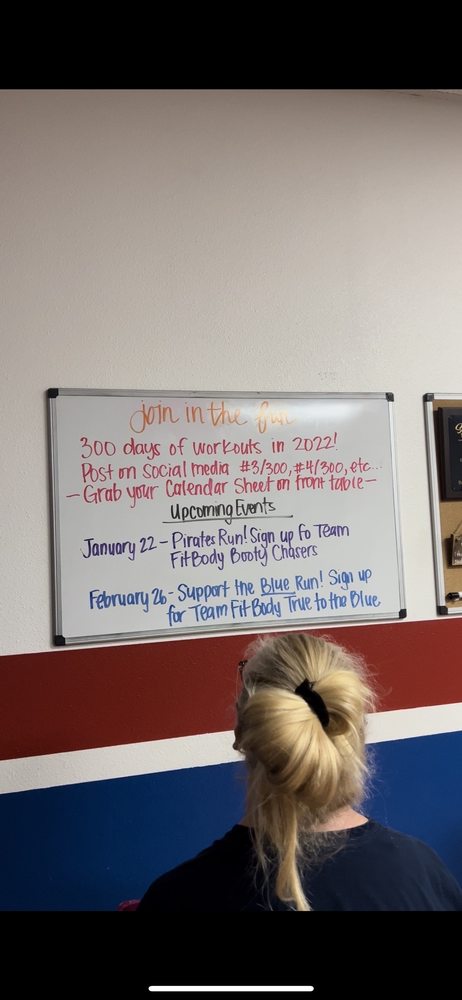 join in the fun
300 days of workouts in 2022!
Post on Social media #3/300, #4/300, etc...
- Grab your Calendar Sheet on front table -
Upcoming Events
January 22 - Pirates Run! Sign up fo Team
FitBody Booty Chasers
February 26 - Support the Blue Run! Sign up
for Team FitBody True to the Blue